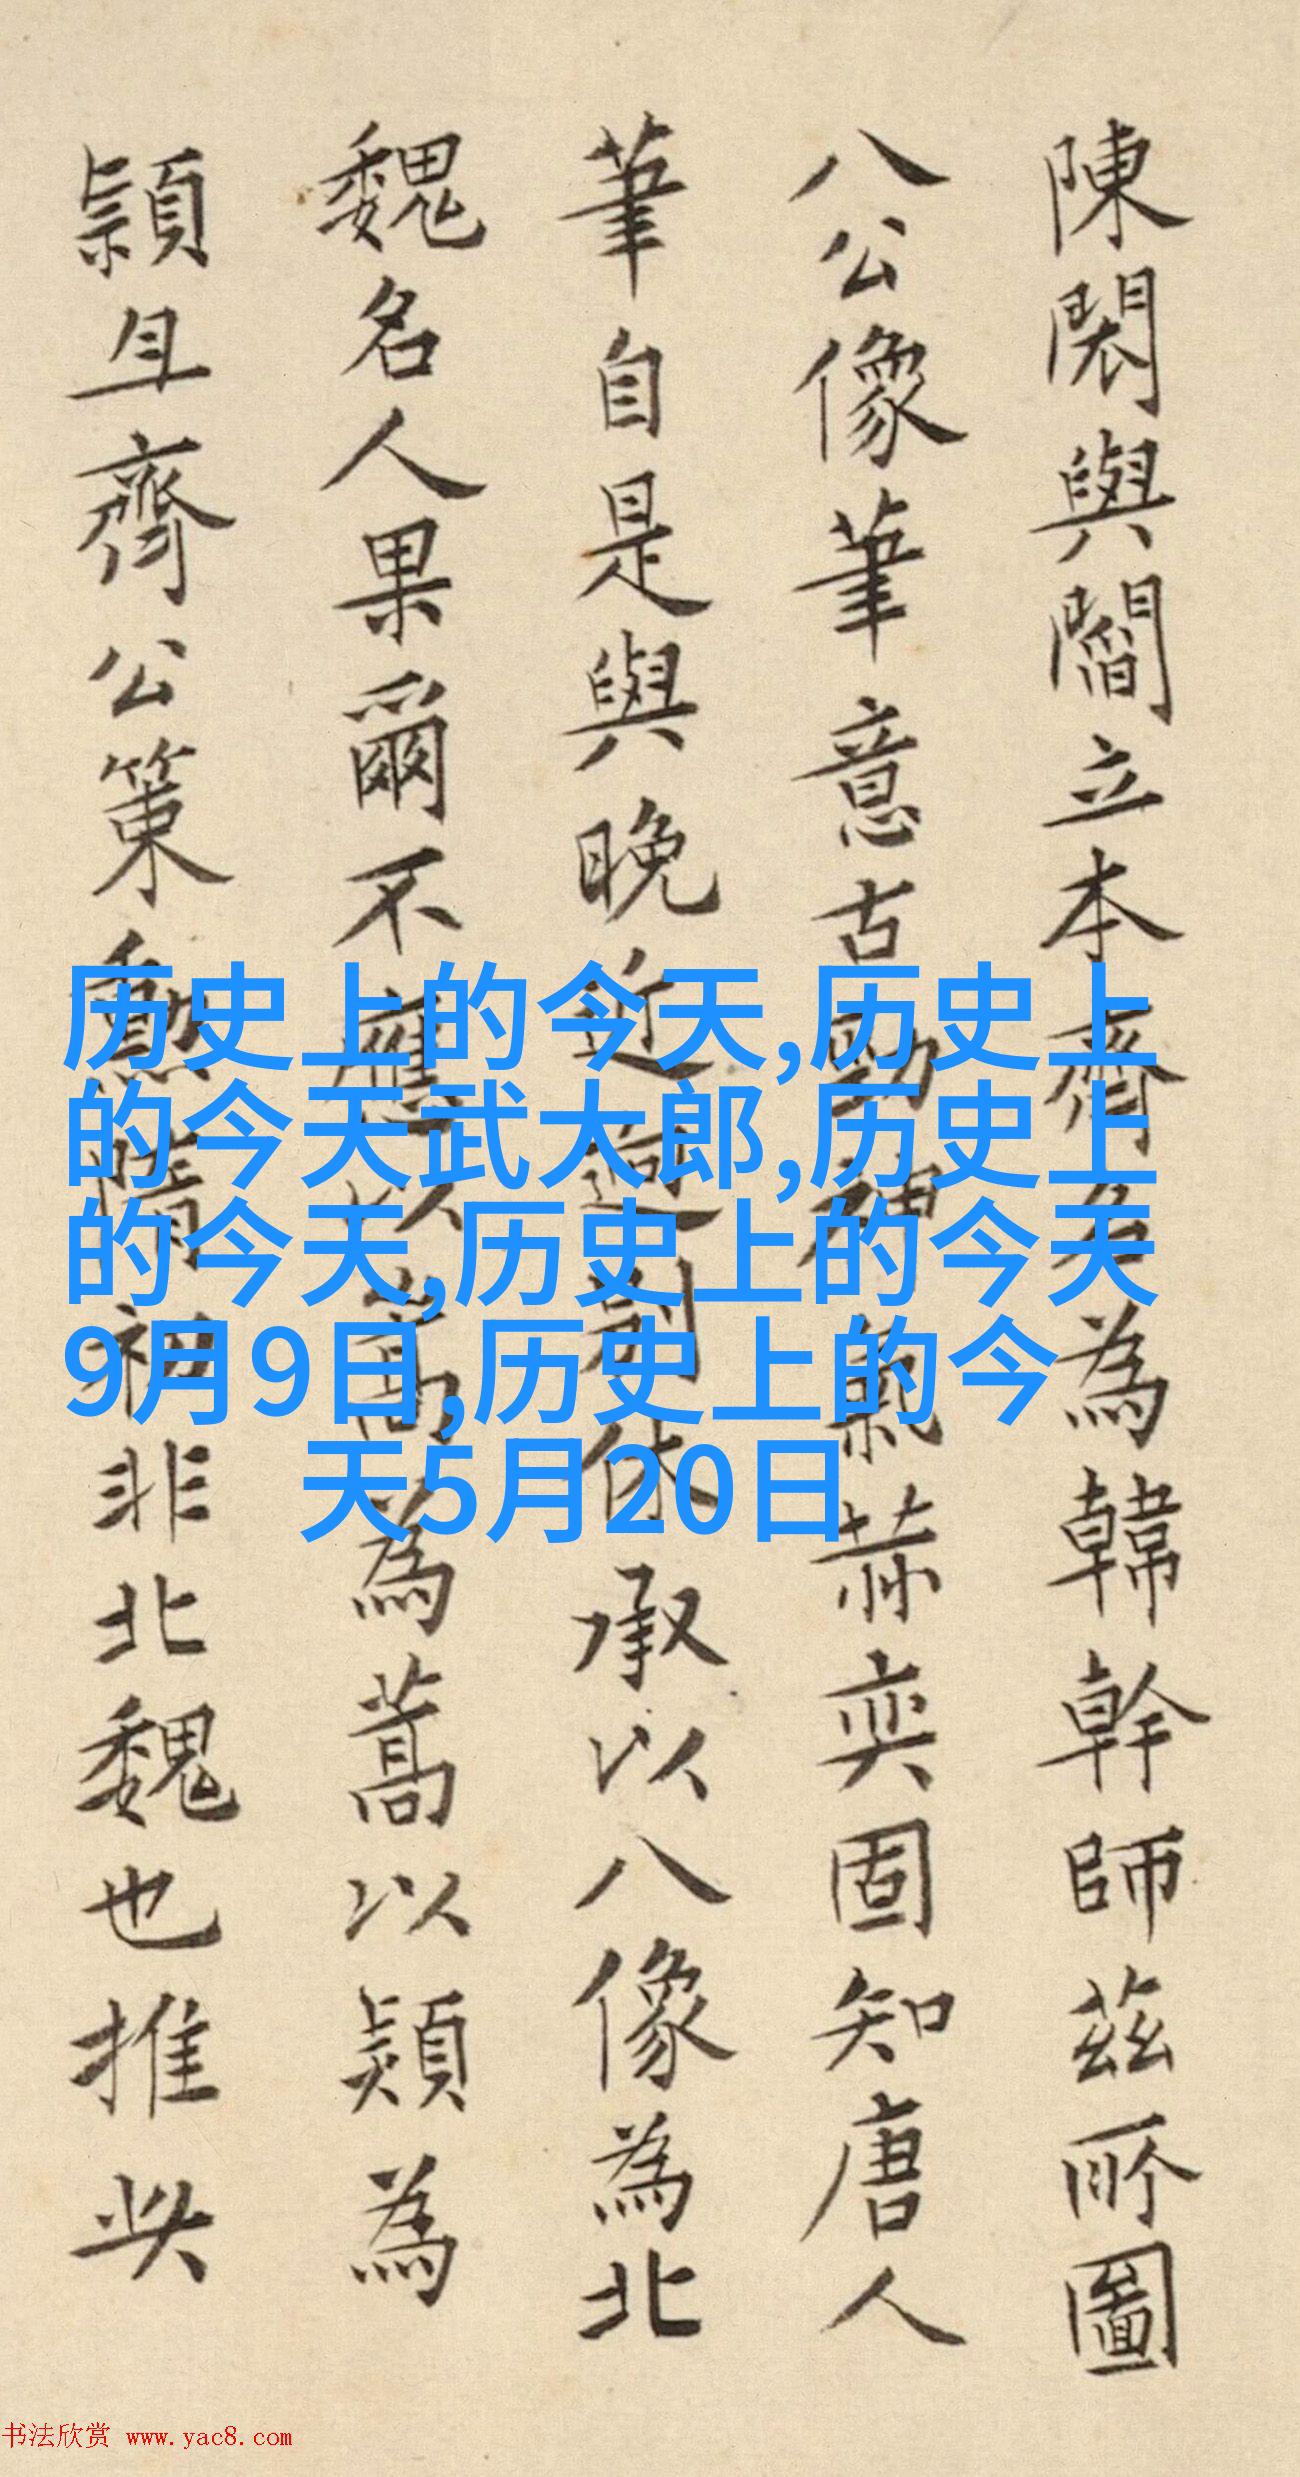 陳閎與閻立本齊名為韓幹師茲所圖
八公像筆意古勁神氣赫奕固知唐人
筆自是與晚近迥別休承以八像為北
魏名人果爾不應以高為蒿以熲為
頴且齊公策勳隋初非北魏也推
历史上的今天,历史上
的今天武大郎,历史上
的今天,历史上的今天
9月9日,历史上的今
天5月20日
书法欣赏 www.yac8.com